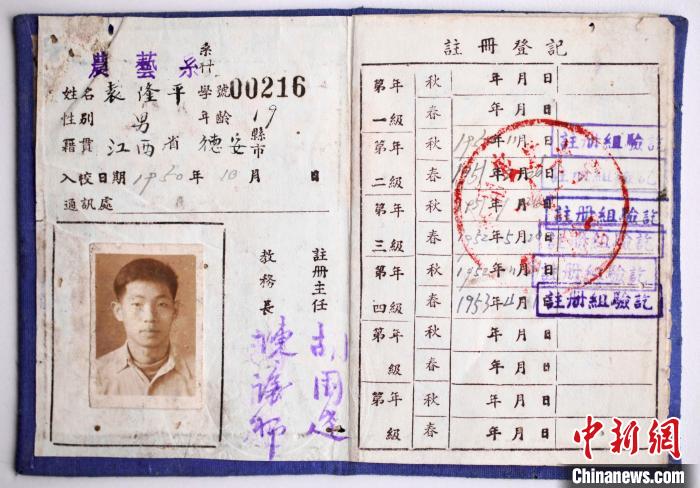 農藝系
系科
姓名 袁隆平 學號 00216
性別 男 年齡 19
籍貫 江西省 德安 縣市
入校日期 1950年10月 日
通訊處
註冊主任
教務長
註冊登記
第一年級 秋 年 月 日
春 年 月 日
第二年級 秋 年11月 日 註冊組驗訖
春 1951年 月 日 註冊組驗訖
第三年級 秋 年 月 日 註冊組驗訖
春 1952年5月 日 註冊組驗訖
第四年級 秋 1952年 月 日 註冊組驗訖
春 1953年4月 日 註冊組驗訖
第 年級 秋 年 月 日
春 年 月 日
第 年級 秋 年 月 日
春 年 月 日
中新網
Chinanews.com